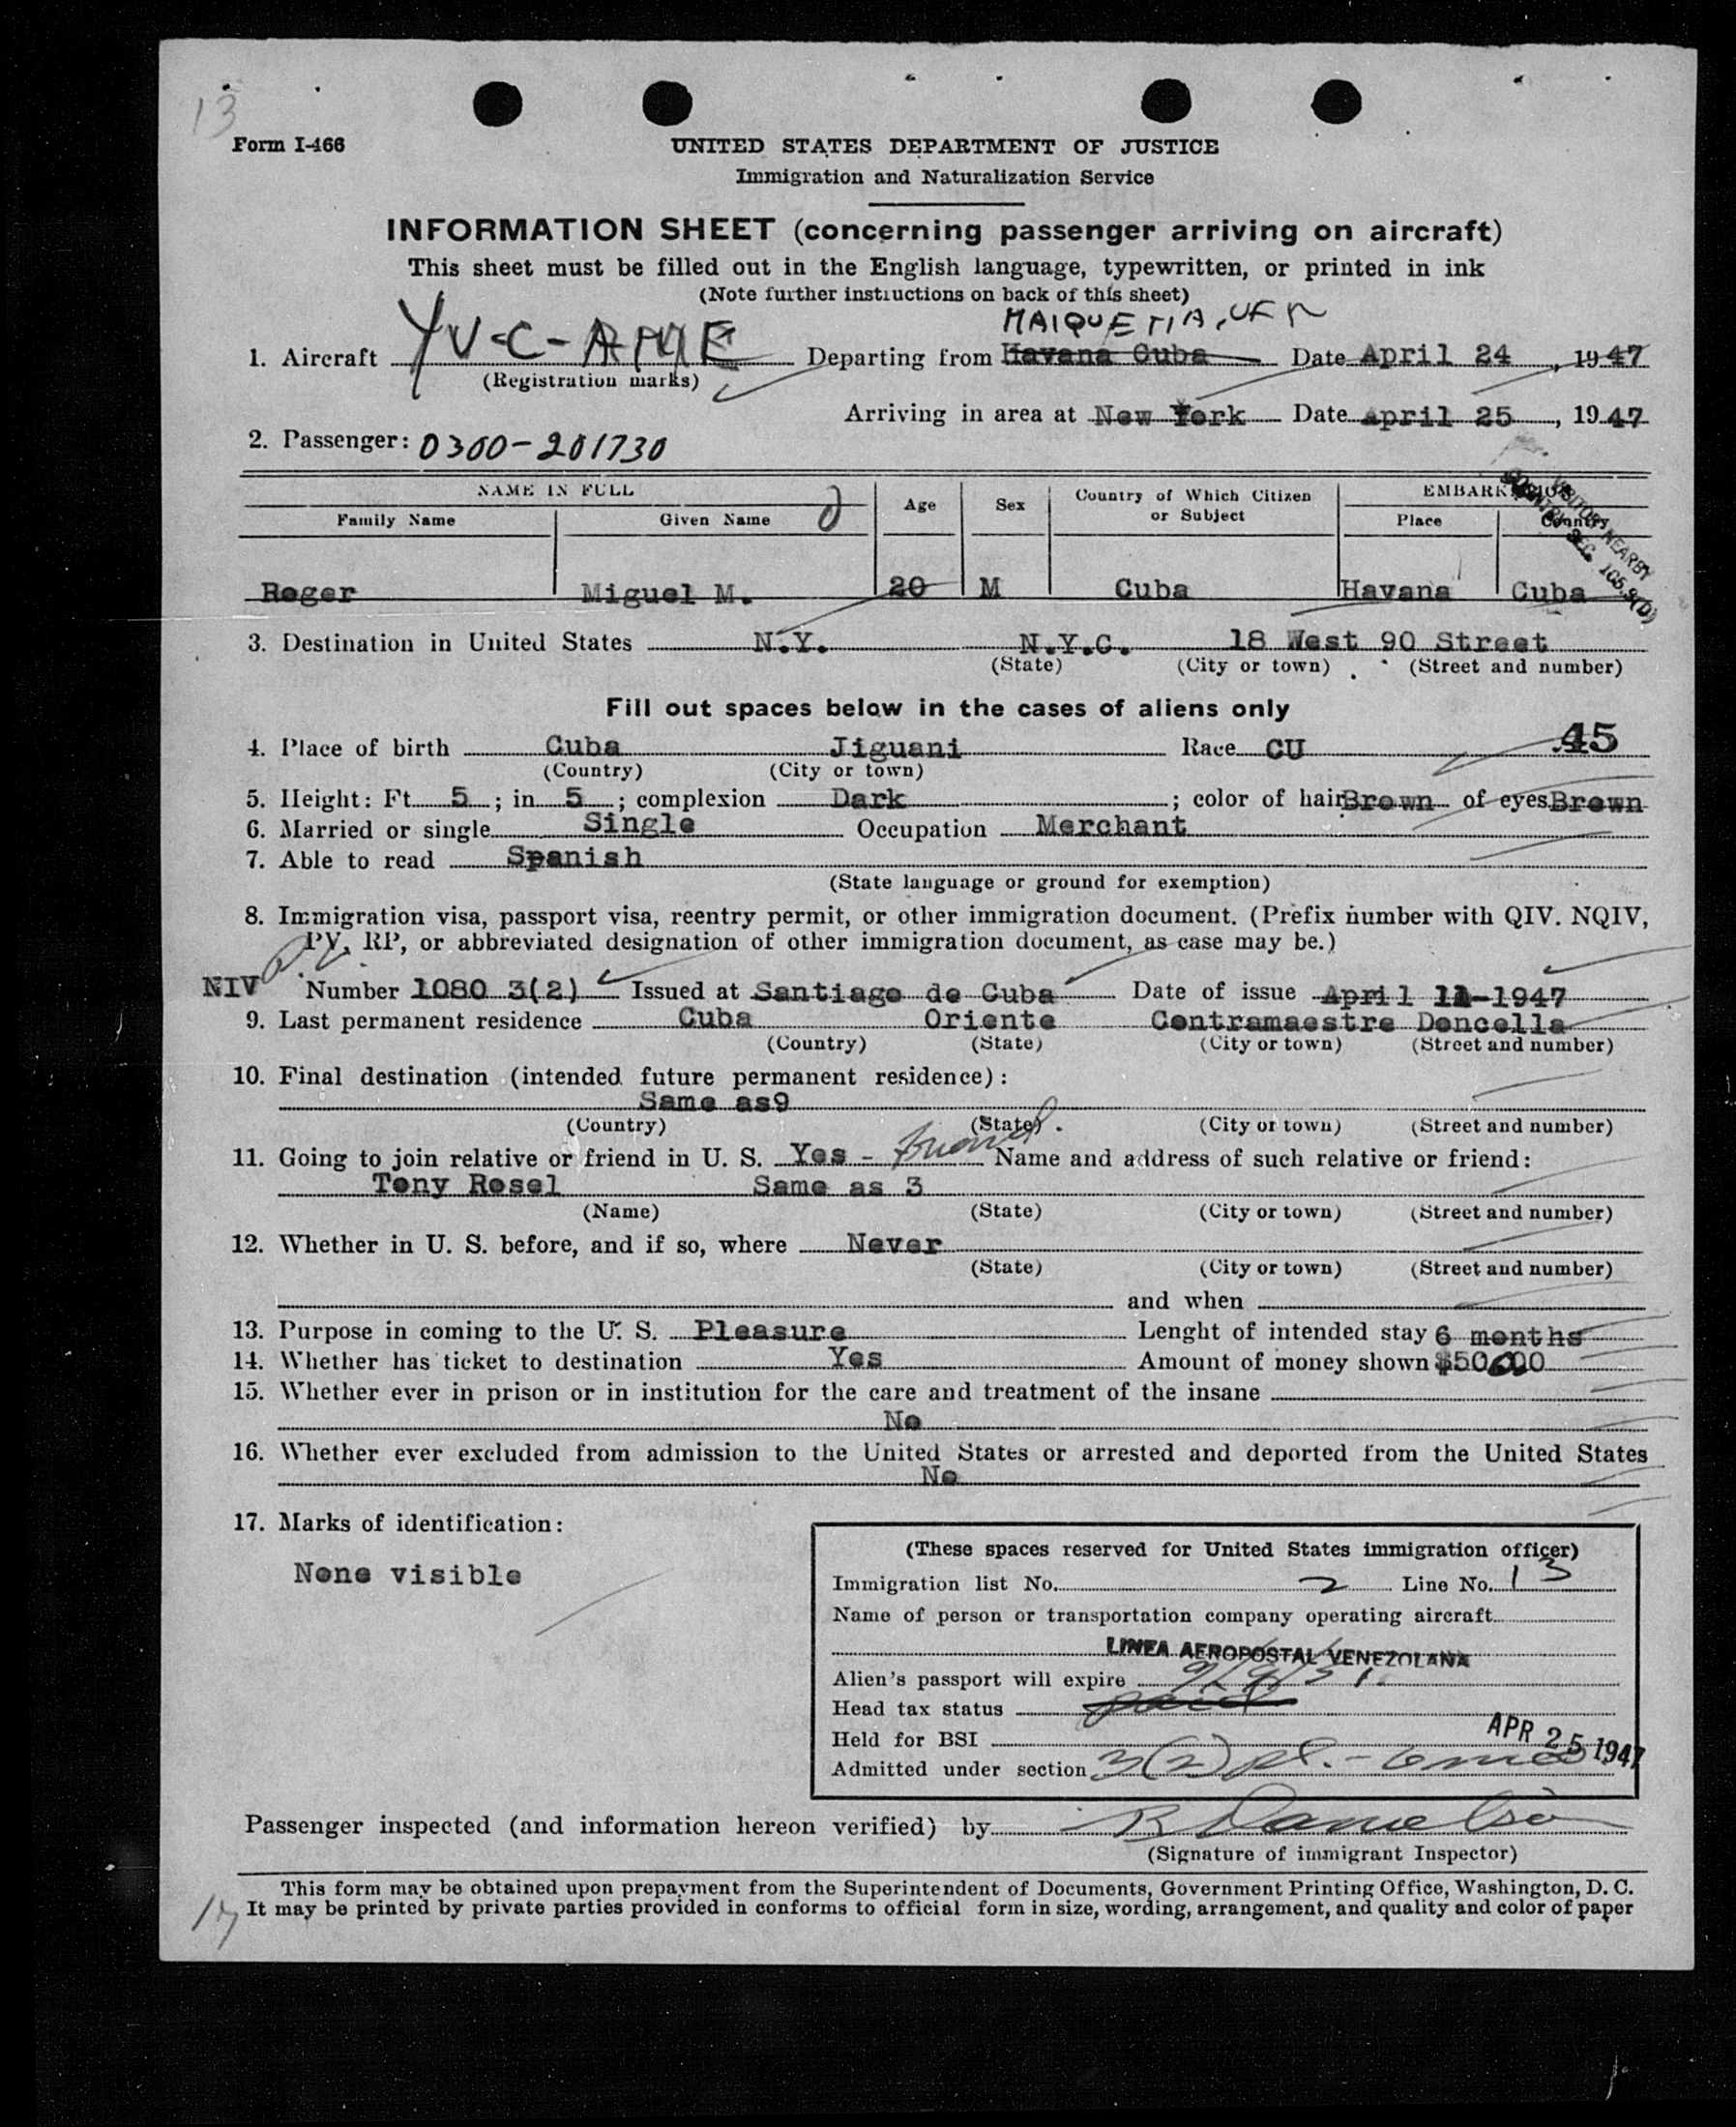 13
Form I-466
UNITED STATES DEPARTMENT OF JUSTICE
Immigration and Naturalization Service
INFORMATION SHEET (concerning passenger arriving on aircraft)
This sheet must be filled out in the English language, typewritten, or printed in ink
(Note further instructions on back of this sheet)
MAIQUETIA,
1. Aircraft YV-C-AME Departing from Havana Cuba Date April 24, 1947
(Registration marks)
Arriving in area at New York Date April 25, 1947
2. Passenger: 0300-201730
NAME IN FULL Age Sex Country of Which Citizen or Subject EMBARKATION
Family Name Given Name Place Country
VISITORS NEARBY
COUNTRY SEC. 105.3(D)
Roger Miguel M. 20 M Cuba Havana Cuba
3. Destination in United States N.Y. N.Y.C. 18 West 90 Street
(State) (City or town) (Street and number)
Fill out spaces below in the cases of aliens only
4. Place of birth Cuba Jiguani Race CU 45
(Country) (City or town)
5. Height: Ft. 5; in 5; complexion Dark; color of hair Brown of eyes Brown
6. Married or single Single Occupation Merchant
7. Able to read Spanish
(State language or ground for exemption)
8. Immigration visa, passport visa, reentry permit, or other immigration document. (Prefix number with QIV. NQIV,
PV, RP, or abbreviated designation of other immigration document, as case may be.)
NIV Number 1080 3(2) Issued at Santiago de Cuba Date of issue April 11-1947
9. Last permanent residence Cuba Oriente Contramaestre Doncella
(Country) (State) (City or town) (Street and number)
10. Final destination (intended future permanent residence):
Same as9
(Country) (State) (City or town) (Street and number)
11. Going to join relative or friend in U. S. Yes - friend Name and address of such relative or friend:
Tony Rosel Same as 3
(Name) (State) (City or town) (Street and number)
12. Whether in U. S. before, and if so, where Never
(State) (City or town) (Street and number)
and when
13. Purpose in coming to the U. S. Pleasure Lenght of intended stay 6 months
14. Whether has ticket to destination Yes Amount of money shown
15. Whether ever in prison or in institution for the care and treatment of the insane
No
16. Whether ever excluded from admission to the United States or arrested and deported from the United States
No
17. Marks of identification:
None visible
(These spaces reserved for United States immigration officer)
Immigration list No. 2 Line No. 13
Name of person or transportation company operating aircraft
LINEA AEROPOSTAL VENEZOLANA
Alien's passport will expire
Head tax status paid
Held for BSI
APR 25 1947
Admitted under section 3(2) pl. - 6 mos
Passenger inspected (and information hereon verified) by R Danielson
(Signature of immigrant Inspector)
This form may be obtained upon prepayment from the Superintendent of Documents, Government Printing Office, Washington, D. C.
It may be printed by private parties provided in conforms to official form in size, wording, arrangement, and quality and color of paper
17